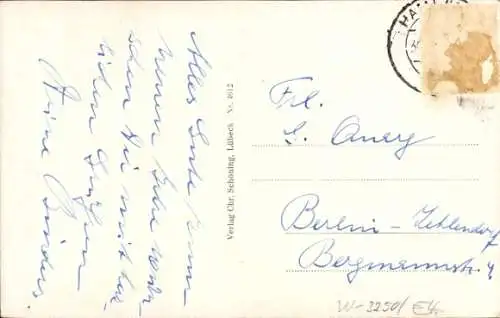 Alles Gute zum
neuen Jahr wün-
schen Dir mit herz-
lichen Grüßen
Deine
Verlag Chr. Schöning, Lübeck Nr. 4612
Frl.
Berlin-Zehlendorf
Bergmannstr. 4
W-3250/